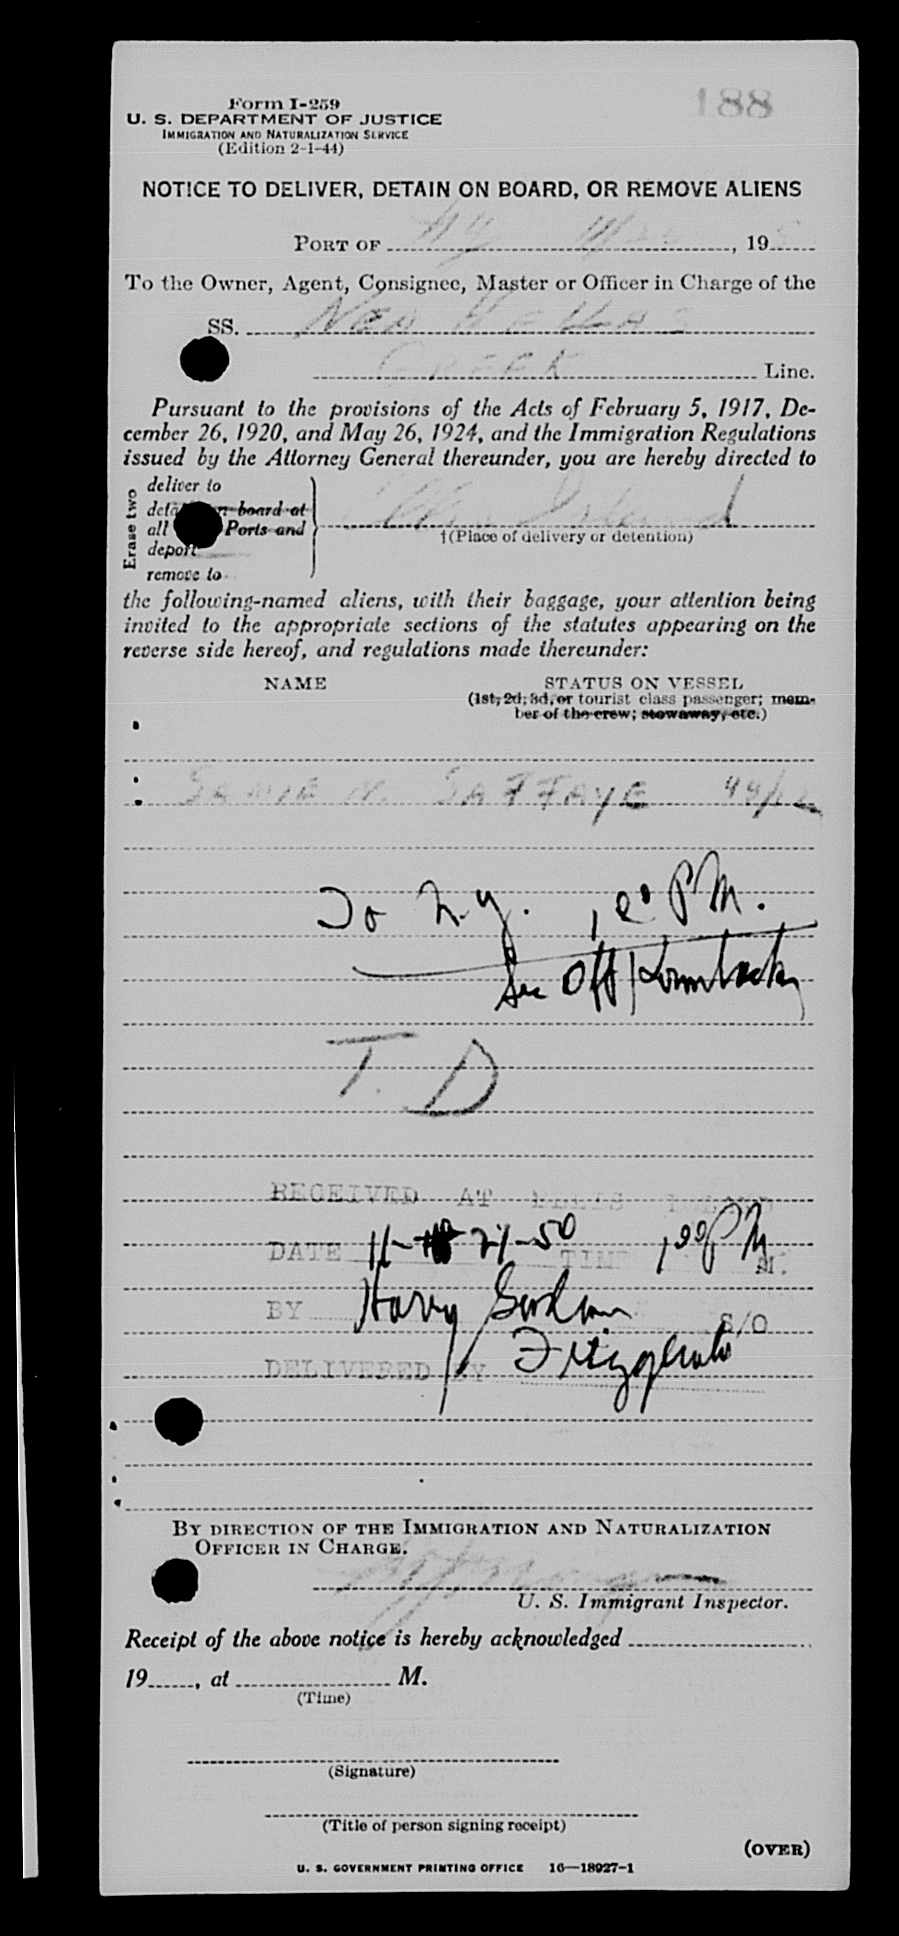 188
Form I-259
U. S. DEPARTMENT OF JUSTICE
IMMIGRATION AND NATURALIZATION SERVICE
(Edition 2-1-44)
NOTICE TO DELIVER, DETAIN ON BOARD, OR REMOVE ALIENS
PORT OF NY , 19
To the Owner, Agent, Consignee, Master or Officer in Charge of the
SS. NEA HELLAS
GREEK Line.
Pursuant to the provisions of the Acts of February 5, 1917, De-
cember 26, 1920, and May 26, 1924, and the Immigration Regulations
issued by the Attorney General thereunder, you are hereby directed to
Erase two
deliver to
on board at
all Ports and
deport
remove to
Ellis Island
†(Place of delivery or detention)
the following-named aliens, with their baggage, your attention being
invited to the appropriate sections of the statutes appearing on the
reverse side hereof, and regulations made thereunder:
NAME STATUS ON VESSEL
(1st, 2d, 3d, or tourist class passenger; mem-
ber of the crew; stowaway, etc.)
SAFFAYE
To N.Y. PM.
Off
T. D
RECEIVED AT ELLIS ISLAND
DATE 11- 21-50 TIME 1 00 PM M.
BY Harry S/O
DELIVERED BY Fitzgerald
BY DIRECTION OF THE IMMIGRATION AND NATURALIZATION
OFFICER IN CHARGE.
U. S. Immigrant Inspector.
Receipt of the above notice is hereby acknowledged
19 , at M.
(Time)
(Signature)
(Title of person signing receipt)
(OVER)
U. S. GOVERNMENT PRINTING OFFICE 16—18927-1